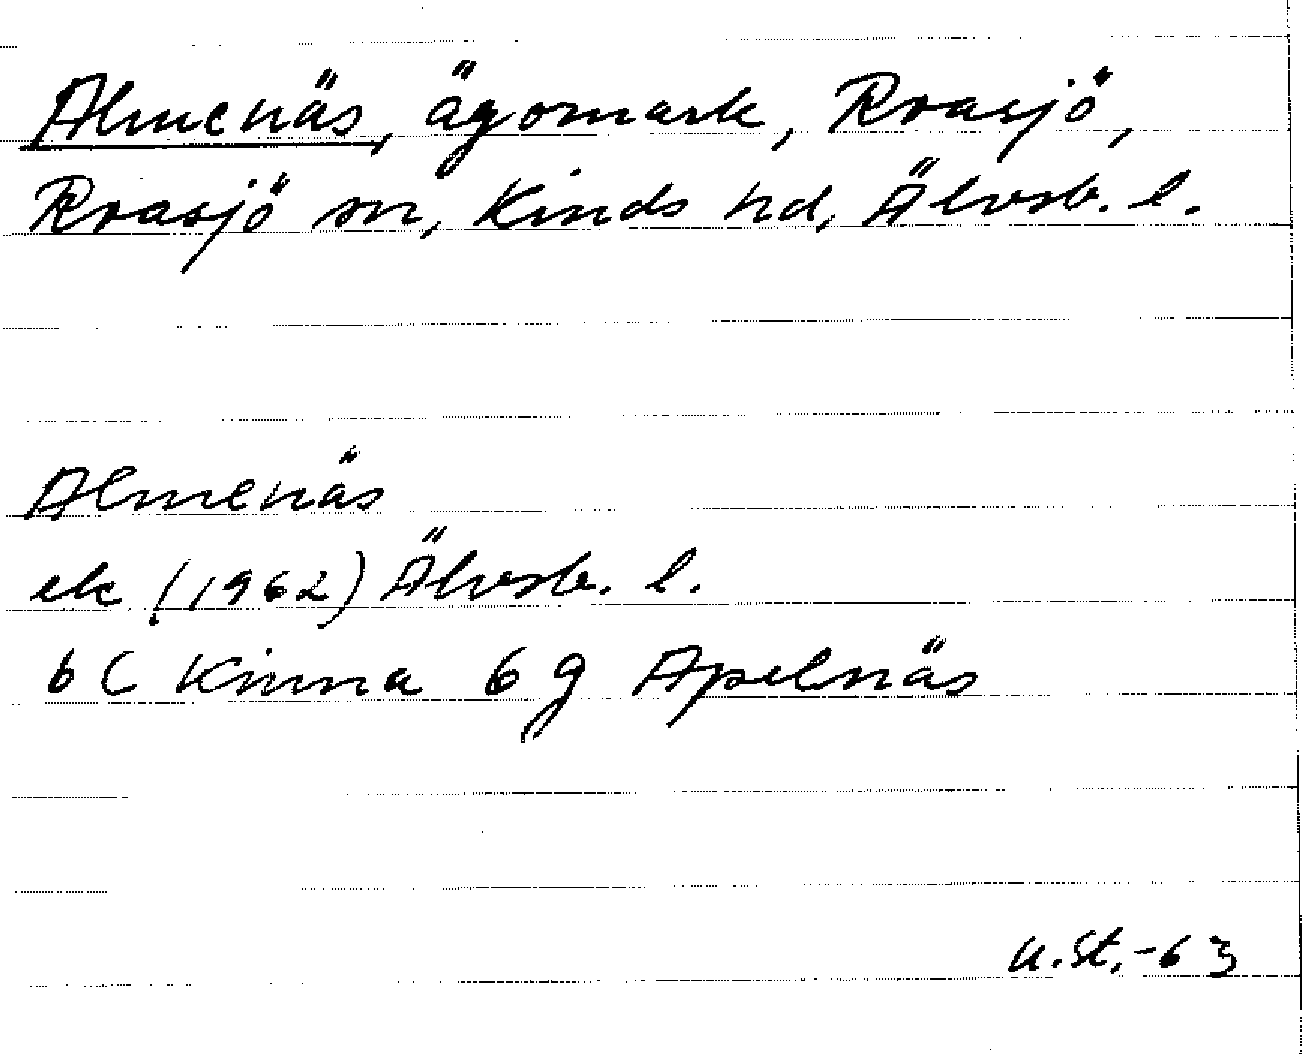 Almenäs, ägomark, Roasjö,
Roasjö sn, Kinds hd, Älvsb. l.
Almenäs
ek (1962) Älvsb. l.
6 C Kinna 6 g Apelnäs
U.St.-63